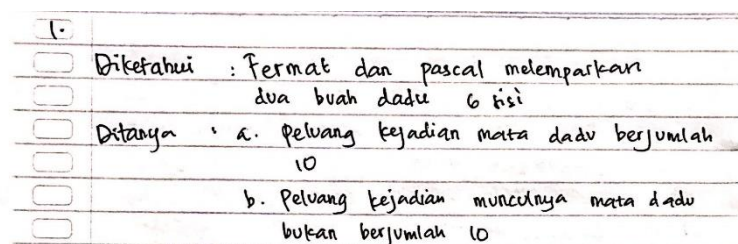 1.
Diketahui : Fermat dan pascal melemparkan
dua buah dadu 6 sisi
Ditanya : a. Peluang kejadian mata dadu berjumlah
10
b. Peluang kejadian munculnya mata dadu
bukan berjumlah 10